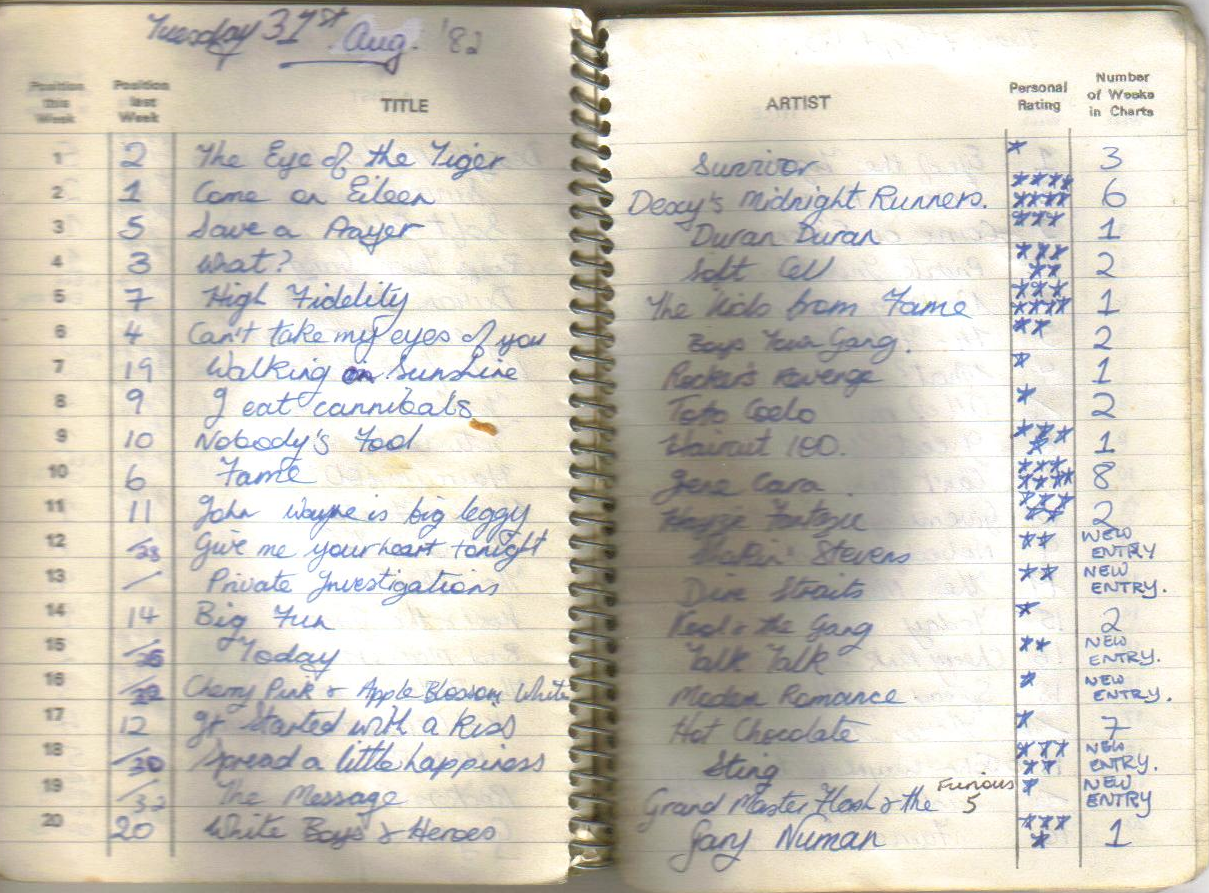 Tuesday 31st Aug. '82
Position this Week Position last Week TITLE ARTIST Personal Rating Number of Weeks in Charts
1 2 The Eye of the Tiger Survivor * 3
2 1 Come on Eileen Dexy's Midnight Runners. ******** 6
3 5 Save a Prayer Duran Duran *** 1
4 3 What? Soft Cell ***** 2
5 7 High Fidelity The Kids from Fame ******* 1
6 4 Can't take my eyes of you Boys Town Gang. ** 2
7 19 Walking on Sunshine Rocker's Revenge * 1
8 9 I eat cannibals Toto Coelo * 2
9 10 Nobody's Fool Haircut 100. **** 1
10 6 Fame Irene Cara. ******* 8
11 11 John Wayne is big leggy Hayze Fantazie ***** 2
12 /28 Give me your heart tonight Shakin' Stevens ** NEW ENTRY
13 / Private Investigations Dire Straits ** NEW ENTRY.
14 14 Big Fun Kool & the Gang * 2
15 / Today Talk Talk ** NEW ENTRY.
16 / Cherry Pink & Apple Blossom White Modern Romance * NEW ENTRY.
17 12 It Started with a Kiss Hot Chocolate * 7
18 /30 Spread a little happiness Sting ***** NEW ENTRY.
19 /32 The Message Grand Master Flash & the Furious 5 * NEW ENTRY
20 20 White Boys & Heroes Gary Numan **** 1